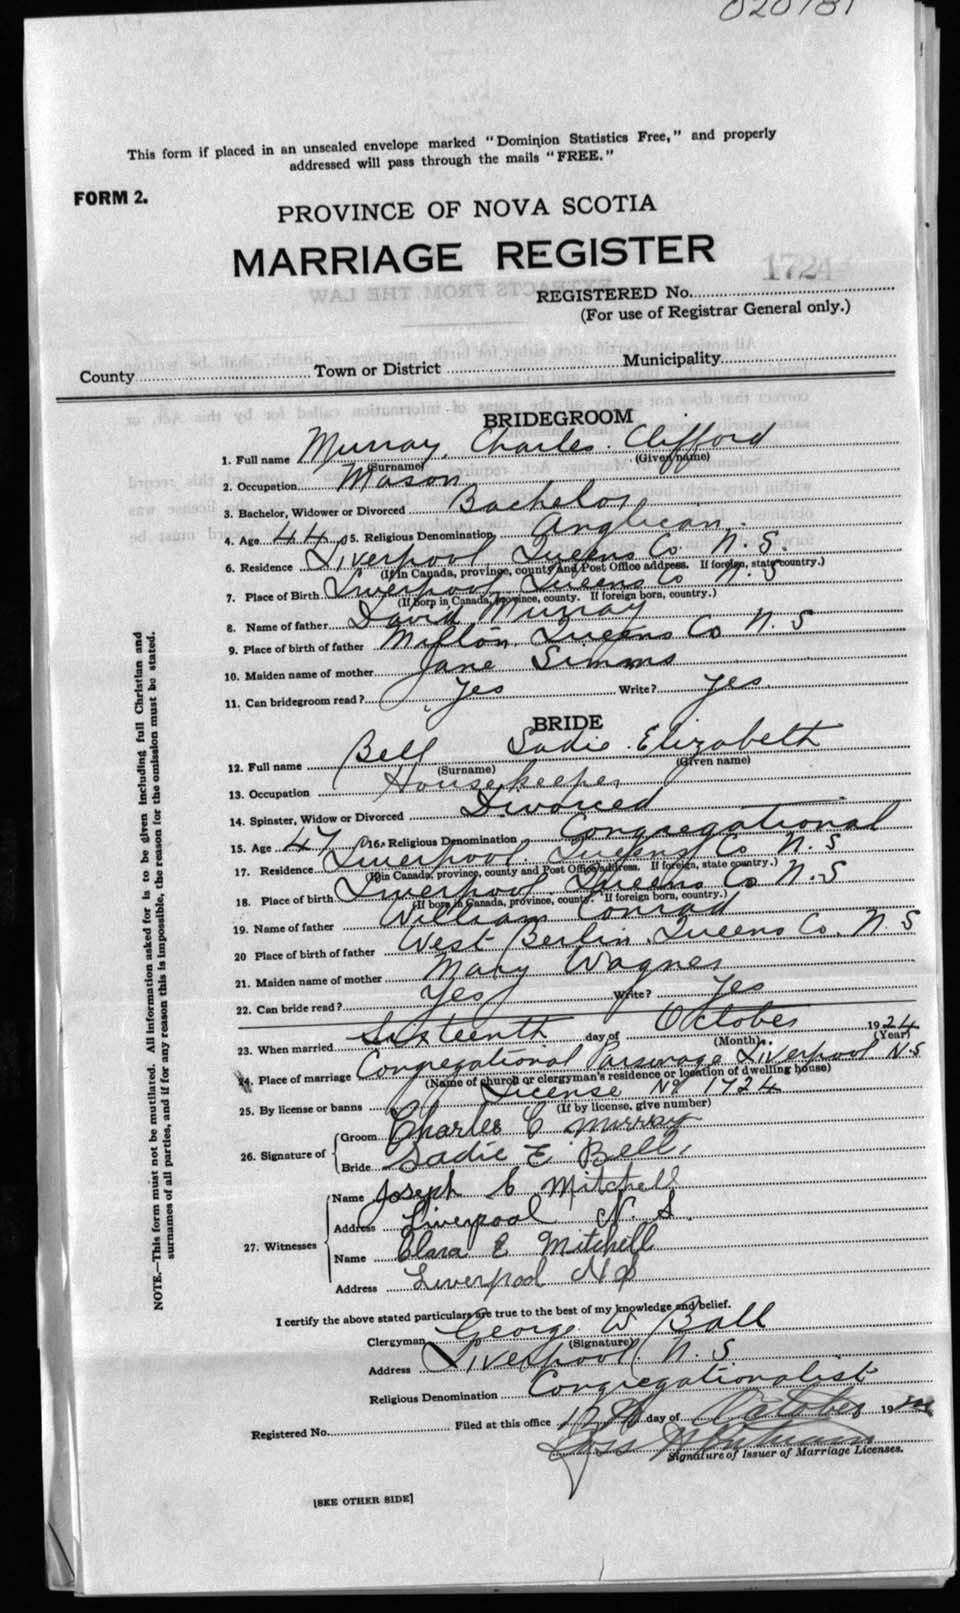 This form if placed in an unsealed envelope marked "Dominion Statistics Free," and properly
addressed will pass through the mails "FREE."
FORM 2.
PROVINCE OF NOVA SCOTIA
MARRIAGE REGISTER
1724
REGISTERED No.
(For use of Registrar General only.)
County Town or District Municipality
BRIDEGROOM
1. Full name Murray, Charles Clifford
(Surname) (Given name)
2. Occupation Mason
3. Bachelor, Widower or Divorced Bachelor
4. Age 44 5. Religious Denomination Anglican
6. Residence Liverpool, Queens Co. N.S.
(If in Canada, province, county and Post Office address. If foreign, state country.)
7. Place of Birth Liverpool, Queens Co N.S
(If born in Canada, province, county. If foreign born, country.)
8. Name of father David Murray
9. Place of birth of father Milton, Queens Co N.S
10. Maiden name of mother Jane Simms
11. Can bridegroom read? Yes Write? Yes
BRIDE
12. Full name Bell Sadie Elizabeth
(Surname) (Given name)
13. Occupation Housekeeper
14. Spinster, Widow or Divorced Divorced
15. Age 47 16. Religious Denomination Congregational
17. Residence Liverpool, Queens Co N.S
(If in Canada, province, county and Post Office address. If foreign, state country.)
18. Place of birth Liverpool, Queens Co N.S
(If born in Canada, province, county. If foreign born, country.)
19. Name of father William Conrad
20 Place of birth of father West Berlin, Queens Co. N.S
21. Maiden name of mother Mary Wagner
22. Can bride read? Yes Write? Yes
23. When married Sixteenth day of October 1924
(Month) (Year)
24. Place of marriage Congregational Parsonage Liverpool N.S
(Name of church or clergyman's residence or location of dwelling house)
25. By license or banns License No 1724
(If by license, give number)
26. Signature of Groom Charles C Murray
Bride Sadie E Bell
27. Witnesses Name Joseph C Mitchell
Address Liverpool N. S.
Name Clara E Mitchell
Address Liverpool N S
I certify the above stated particulars are true to the best of my knowledge and belief.
Clergyman George W Ball
(Signature)
Address Liverpool N.S
Religious Denomination Congregationalist
Registered No. Filed at this office 17th day of October 19
Signature of Issuer of Marriage Licenses.
[SEE OTHER SIDE]
NOTE.—This form must not be mutilated. All information asked for is to be given including full Christian and
surnames of all parties, and if for any reason this is impossible, the reason for the omission must be stated.